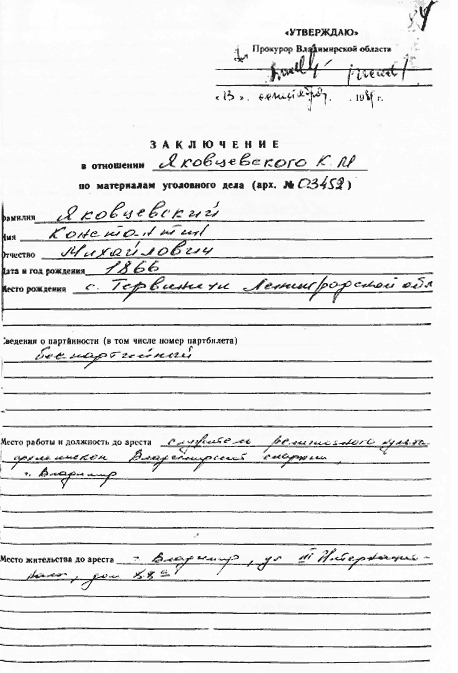 84
«УТВЕРЖДАЮ»
Прокурор Владимирской области
«13». сентября. . 1989 г.
ЗАКЛЮЧЕНИЕ
в отношении Яковцевского К.М
по материалам уголовного дела (арх. №03452)
фамилия Яковцевский
Имя Константин
Отчество Михайлович
Дата и год рождения 1866
Место рождения с. Тервиничи Ленинградской обл
Сведения о партийности (в том числе номер партбилета)
беспартийный
Место работы и должность до ареста служитель религиозного культа
Владимирской епархии,
г. Владимир
Место жительства до ареста г. Владимир, ул III Интернацио-
нала, дом